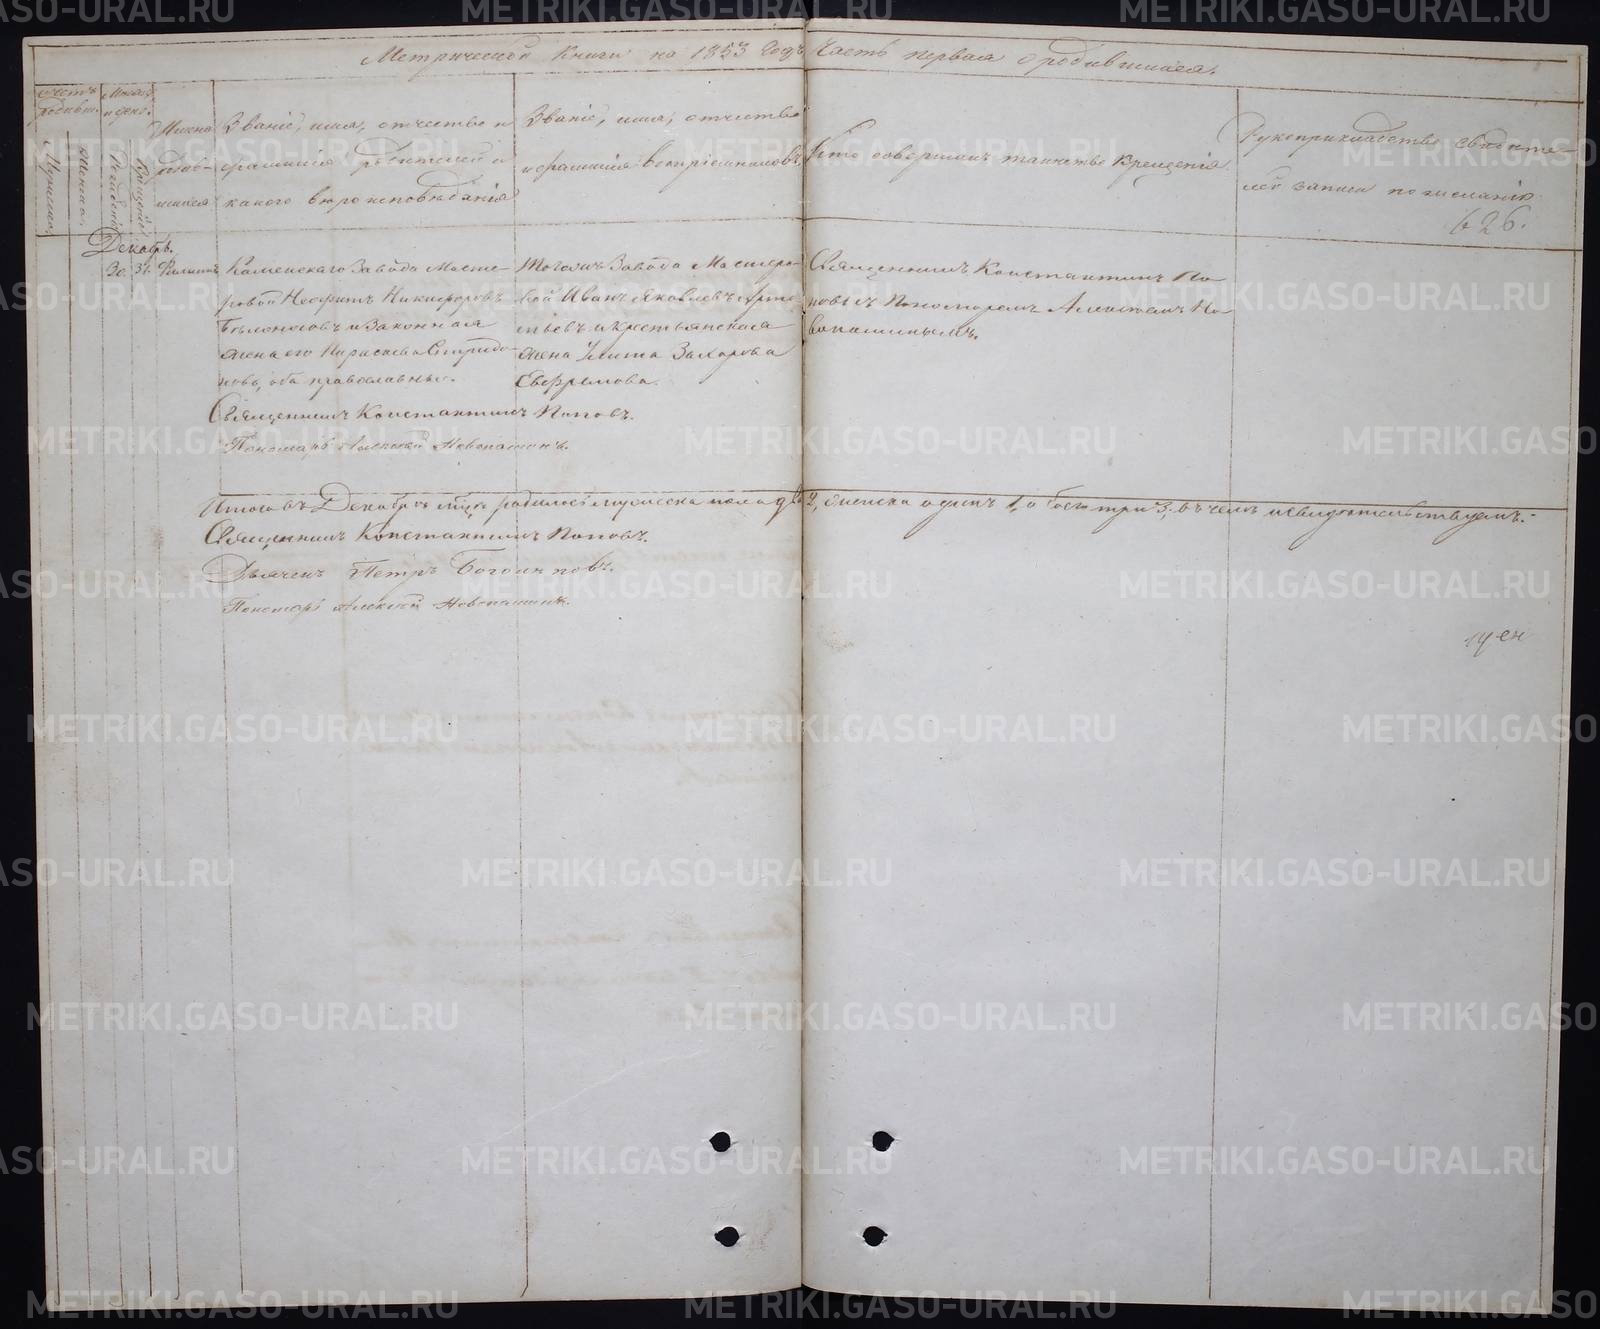 Метрической Книги на 1853 годъ Часть первая о родившихся.
Счетъ родивш.
Мужеска.
Женска.
Месяцъ и день.
Рожденія
Крещенія
Имена родив-шихся
Званіе, имя, отчество и
фамилія родителей и
какого вероисповеданія
Званіе, имя, отчество
и фамилія воспріемниковъ.
Кто совершалъ таинство Крещенія
Рукоприкладство свидете-
лей записи по желанію
626.
Декабрь.
30. 31. Филиппъ
Каменскаго Завода Масте-
ровой Неофитъ Никифоровъ
Белоносовъ и законная
жена его Параскева Спиридо-
нова, оба православные.
Тогожъ Завода Мастеро-
вой Иванъ Яковлевъ Арте-
мьевъ и крестьянская
жена Улита Захарова
Евфремова.
Священникъ Константинъ По-
повъ съ Пономаремъ Алексеемъ Но-
вопашинымъ.
Священникъ Константинъ Поповъ.
Пономарь Алексей Новопашинъ.
Итого въ Декабре м-це родилось мужеска пола два 2, женска одинъ 1, а всего три 3, въ чемъ и свидетельствуемъ.
Священникъ Константинъ Поповъ.
Дьячекъ Петръ
Пономарь Алексей Новопашинъ.
METRIKI.GASO-URAL.RU